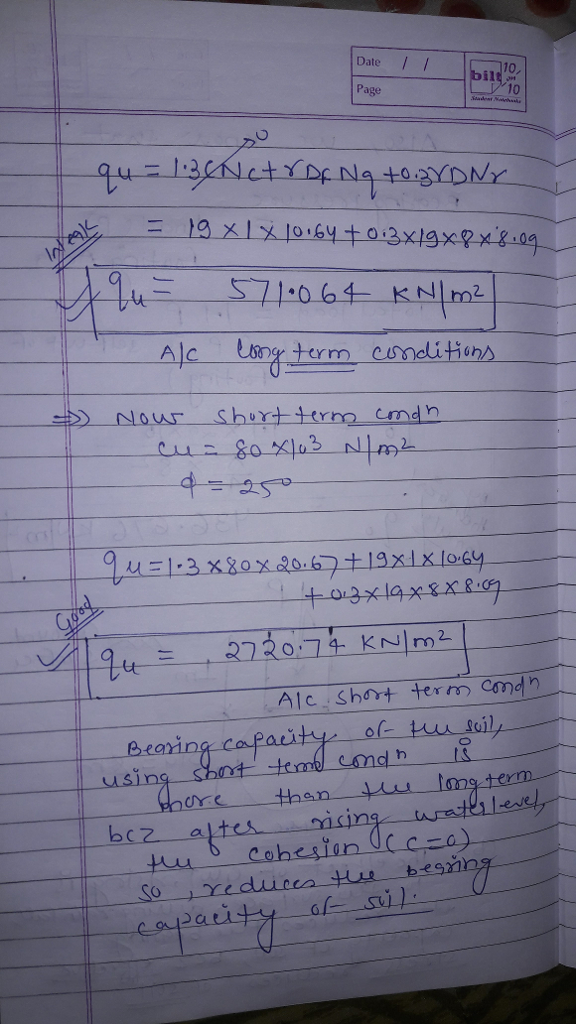 Date / /
Page
bilt 10 on 10
Student Notebooks
0
qu = 1.3CNc + γDf Nq + 0.3γDNγ
= 19 × 1 × 10.64 + 0.3×19×8×8.09
qu = 571.064 KN/m²
A/c long term conditions
⇒ Now short term condn
cu = 80 × 10³ N/m²
φ = 25°
qu = 1.3 × 80 × 20.67 + 19×1×10.64
+ 0.3×19×8×8.09
Good
qu = 2720.74 KN/m²
A/c short term condn
Bearing capacity of the soil,
using short term condn is
more than the long term
bcz after rising water level,
the cohesion (c=0)
so, reduces the bearing
capacity of soil.